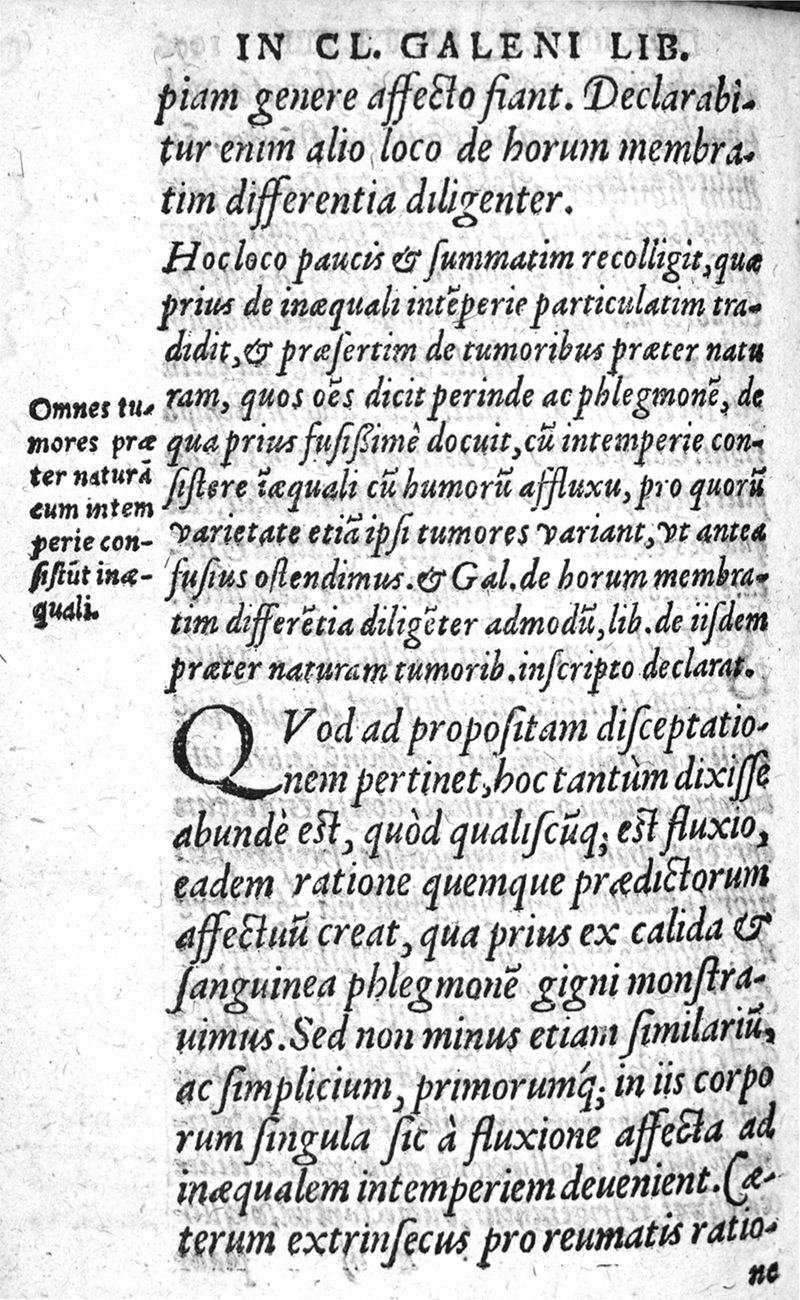 IN CL. GALENI LIB.
piam genere affecto fiant. Declarabi-
tur enim alio loco de horum membra-
tim differentia diligenter.
Hoc loco paucis & ſummatim recolligit, quæ
prius de inæquali intẽperie particulatim tra-
didit, & præſertim de tumoribus præter natu
ram, quos oẽs dicit perinde ac phlegmonẽ, de
qua prius fuſiſsimè docuit, cũ intemperie con-
ſiſtere ĩæquali cũ humorũ affluxu, pro quorũ
varietate etiã ipſi tumores variant, vt antea
fuſius oſtendimus. & Gal. de horum membra-
tim differẽtia diligẽter admodũ, lib. de iiſdem
præter naturam tumorib. inſcripto declarat.
Omnes tu-
mores præ
ter naturã
cum intem
perie con-
ſiſtũt inæ-
quali.
QVod ad propoſitam diſceptatio-
nem pertinet, hoc tantùm dixiſſe
abundè eſt, quòd qualiſcũq; eſt fluxio,
eadem ratione quemque prædictorum
affectuũ creat, qua prius ex calida &
ſanguinea phlegmonẽ gigni monſtra-
uimus. Sed non minus etiam ſimilariũ,
ac ſimplicium, primorumq́; in iis corpo
rum ſingula ſic à fluxione affecta ad
inæqualem intemperiem deuenient. Cæ-
terum extrinſecus pro reumatis ratio-
ne